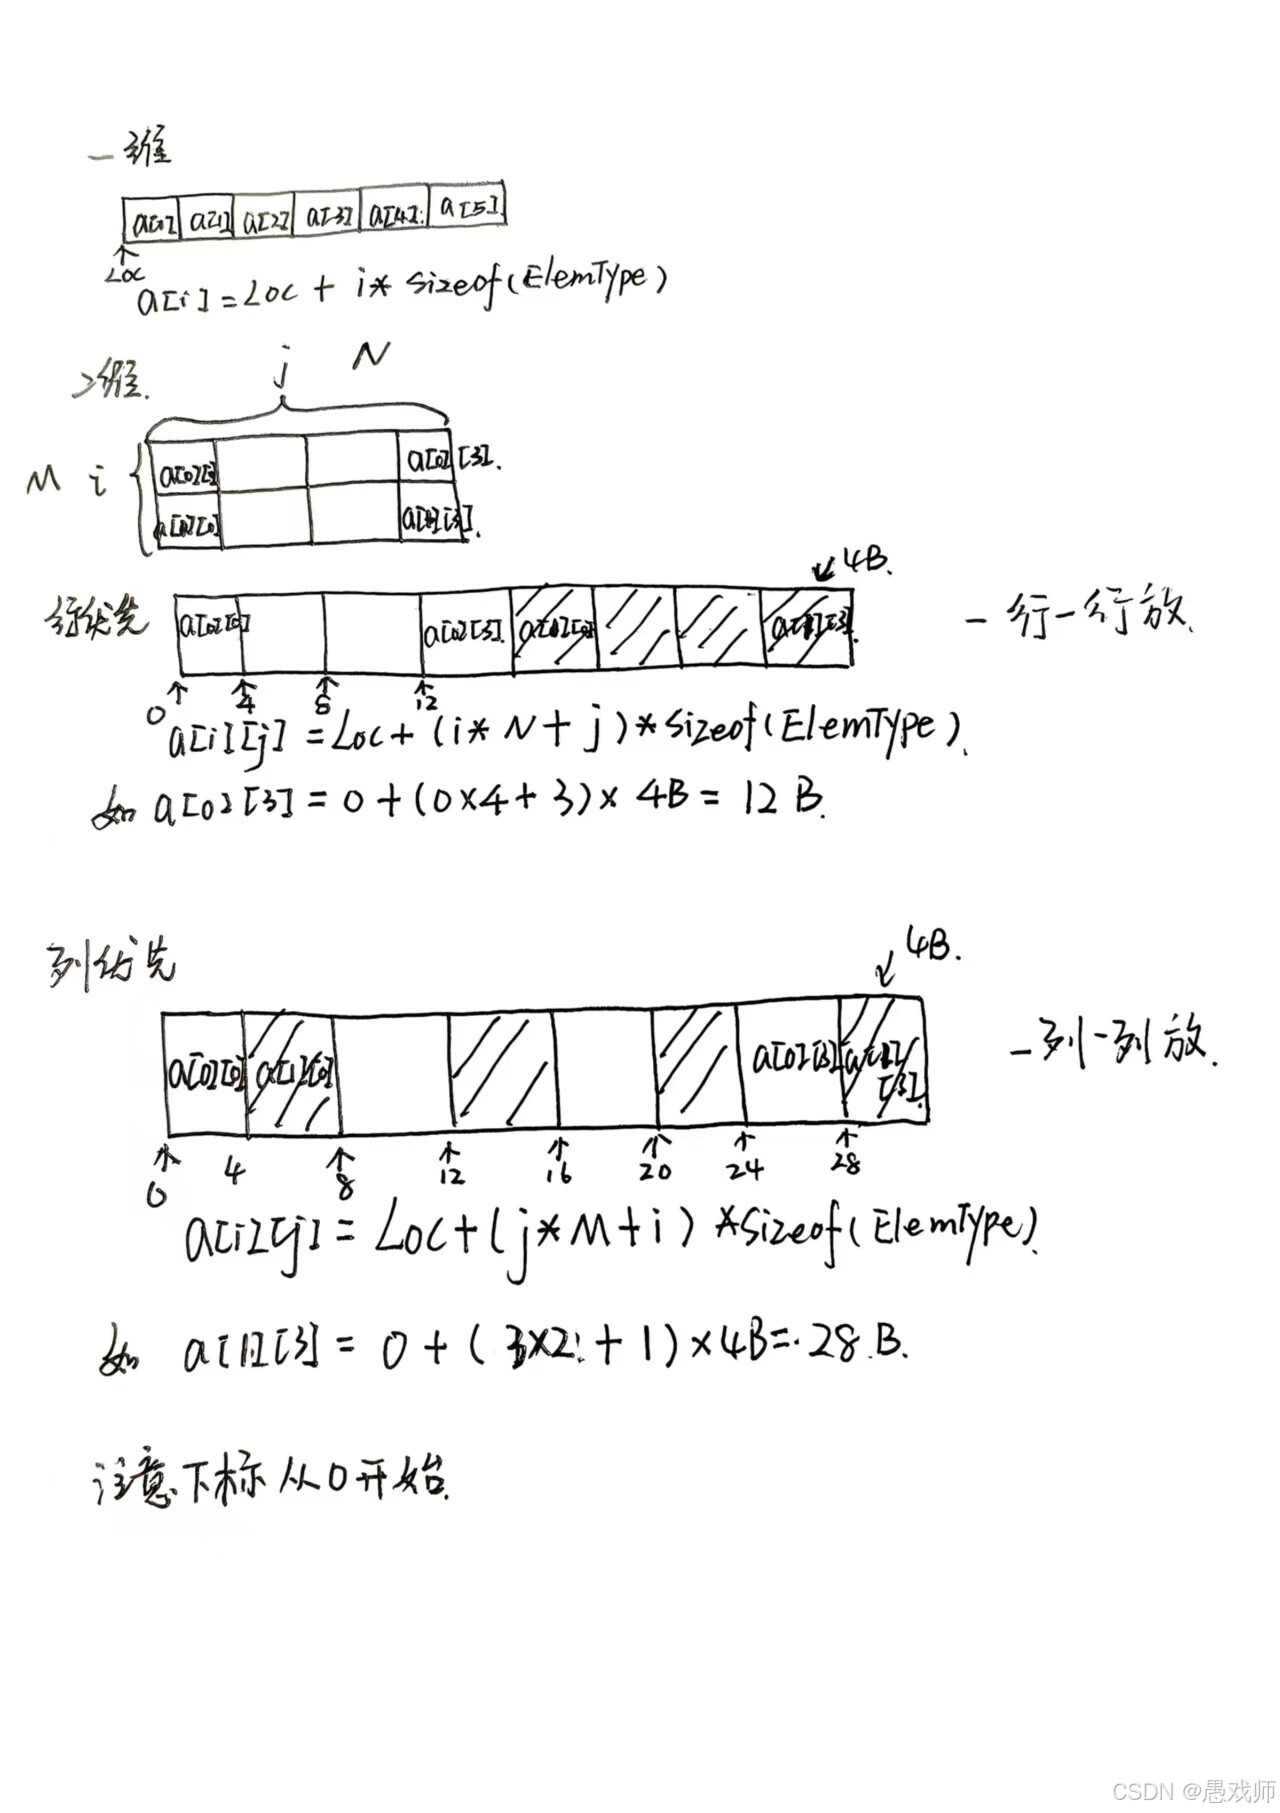 一维
a[0] a[1] a[2] a[3] a[4] a[5]
Loc
a[i] = Loc + i* sizeof(ElemType)
j N
二维.
M i
a[0][0] a[0][3].
a[1][0] a[1][3].
4B.
行优先 a[0][0] a[0][3]. a[1][0] a[1][3]. 一行一行放.
0 4 8 12
a[i][j] = Loc + (i* N + j)*sizeof(ElemType).
如 a[0][3] = 0 + (0×4+3)× 4B = 12 B.
列优先
4B.
a[0][0] a[1][0] a[0][3] a[1][3]. 一列一列放.
0 4 8 12 16 20 24 28
a[i][j] = Loc + (j*M+i) *sizeof(ElemType).
如 a[1][3] = 0 + (3×2+1)×4B = 28 B.
注意下标从0开始.
CSDN @愚戏师